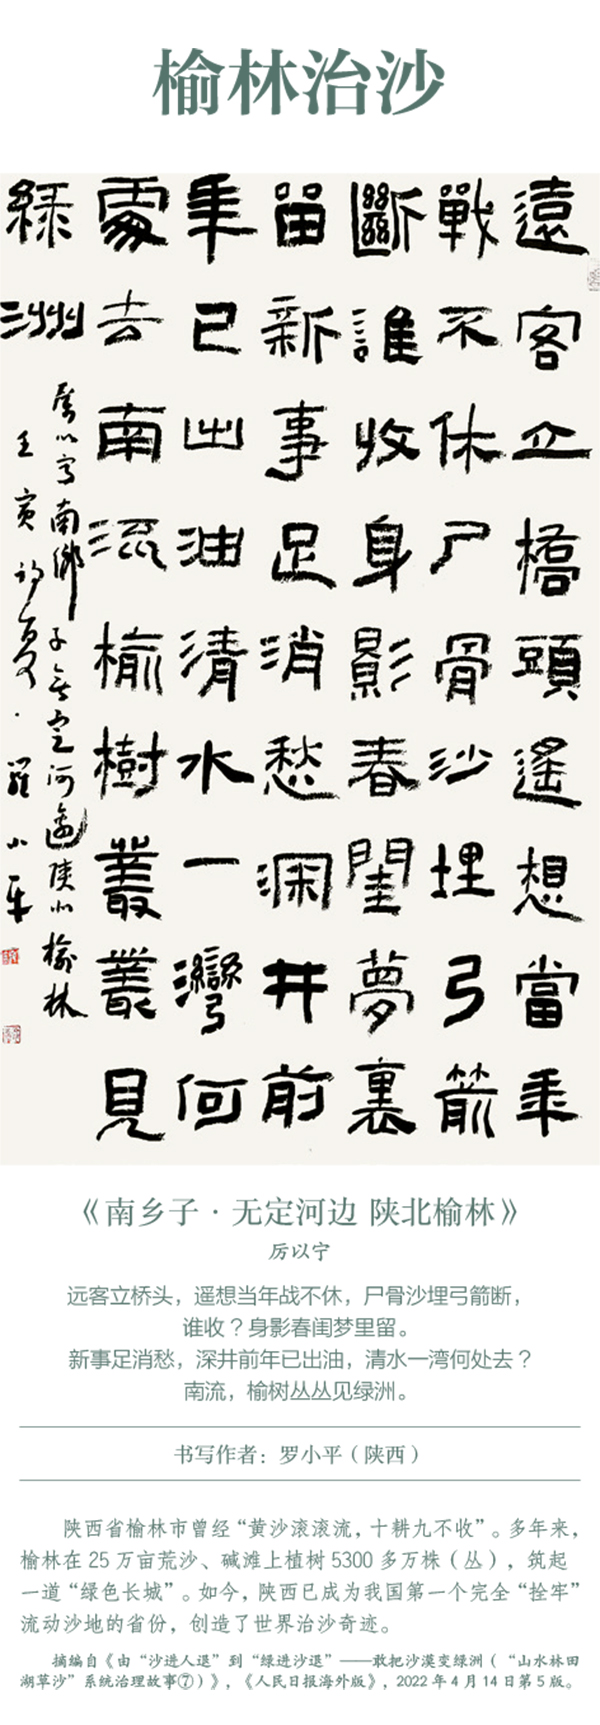 榆林治沙
遠客立橋頭遙想當年
戰不休尸骨沙埋弓箭
斷誰收身影春閨夢裏
留新事足消愁深井前
年已出油清水一灣何
處去南流榆樹叢叢見
綠洲
厉以宁南鄉子无定河邊陝北榆林
壬寅初夏·羅小平
《南乡子·无定河边 陕北榆林》
厉以宁
远客立桥头，遥想当年战不休，尸骨沙埋弓箭断，
谁收？身影春闺梦里留。
新事足消愁，深井前年已出油，清水一湾何处去？
南流，榆树丛丛见绿洲。
书写作者：罗小平（陕西）
陕西省榆林市曾经“黄沙滚滚流，十耕九不收”。多年来，
榆林在 25 万亩荒沙、碱滩上植树 5300 多万株（丛），筑起
一道“绿色长城”。如今，陕西已成为我国第一个完全“拴牢”
流动沙地的省份，创造了世界治沙奇迹。
摘编自《由“沙进人退”到“绿进沙退”——敢把沙漠变绿洲（“山水林田
湖草沙”系统治理故事⑦）》，《人民日报海外版》，2022 年 4 月 14 日第 5 版。